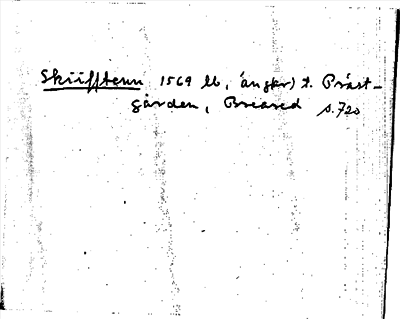 Skiifftenn 1569 lb, ängkr) t. Präst-
gården, Breared s.720